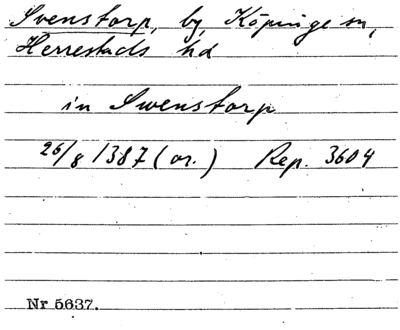 Svenstorp, by, Köpinge sn,
Herrestads hd
in Swenstorp
26/8 1387 (or.) Rep. 3604
Nr 5637.